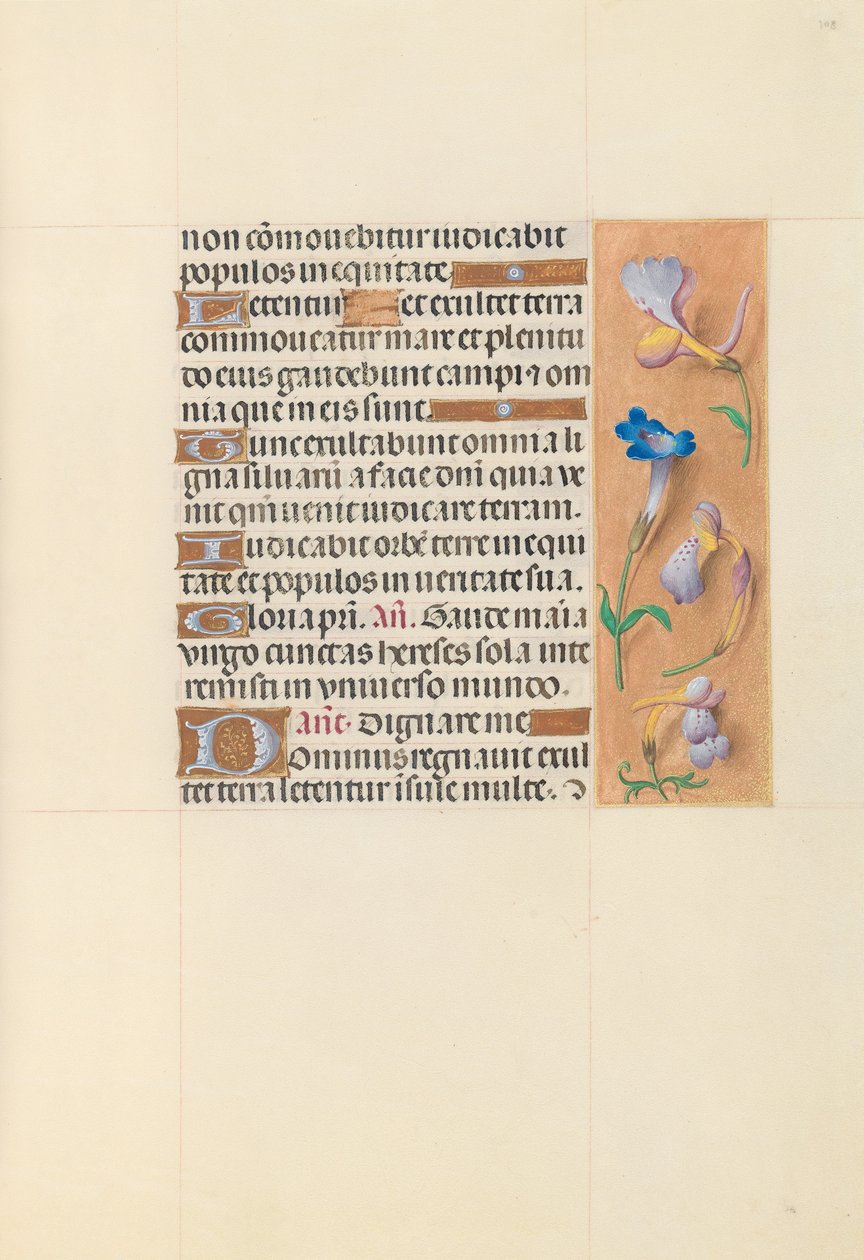 108
non cōmouebitur iudicabit
populos in equitate
Letentur et exultet terra
commoueatur mare et plenitu
do eius gaudebunt campi ⁊ om
nia que in eis sunt.
Tunc exultabunt omnia li
gna siluarū a facie dn̄i quia ve
nit qm̄ uenit iudicare terram.
Iudicabit orbē terre in equi
tate et populos in ueritate sua.
Gloria pr̄i. An̄. Gaude maīa
virgo cunctas hereses sola inte
remisti in vniuerso mundo.
Ant̄. Dignare me
Dominus regnauit exul
tet terra letentur īsule multe.